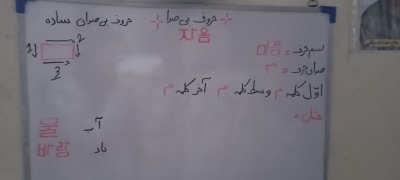 حروف بی صدا حروف بی صدای ساده
자음
1 2
3
اسم حرف = 미음
صدای حرف = م
اوّل کلمه م وسط کلمه م آخر کلمه م
مثل:
물 آب
바람 باد